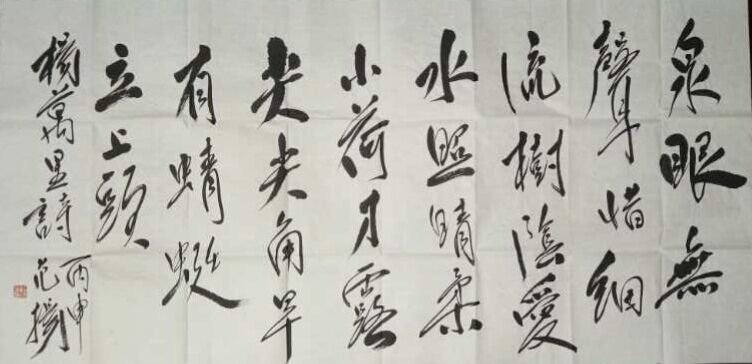 泉眼無
聲惜細
流樹陰愛
水照晴柔
小荷才露
尖尖角早
有蜻蜓
立上頭
楊萬里詩
丙申
范揚